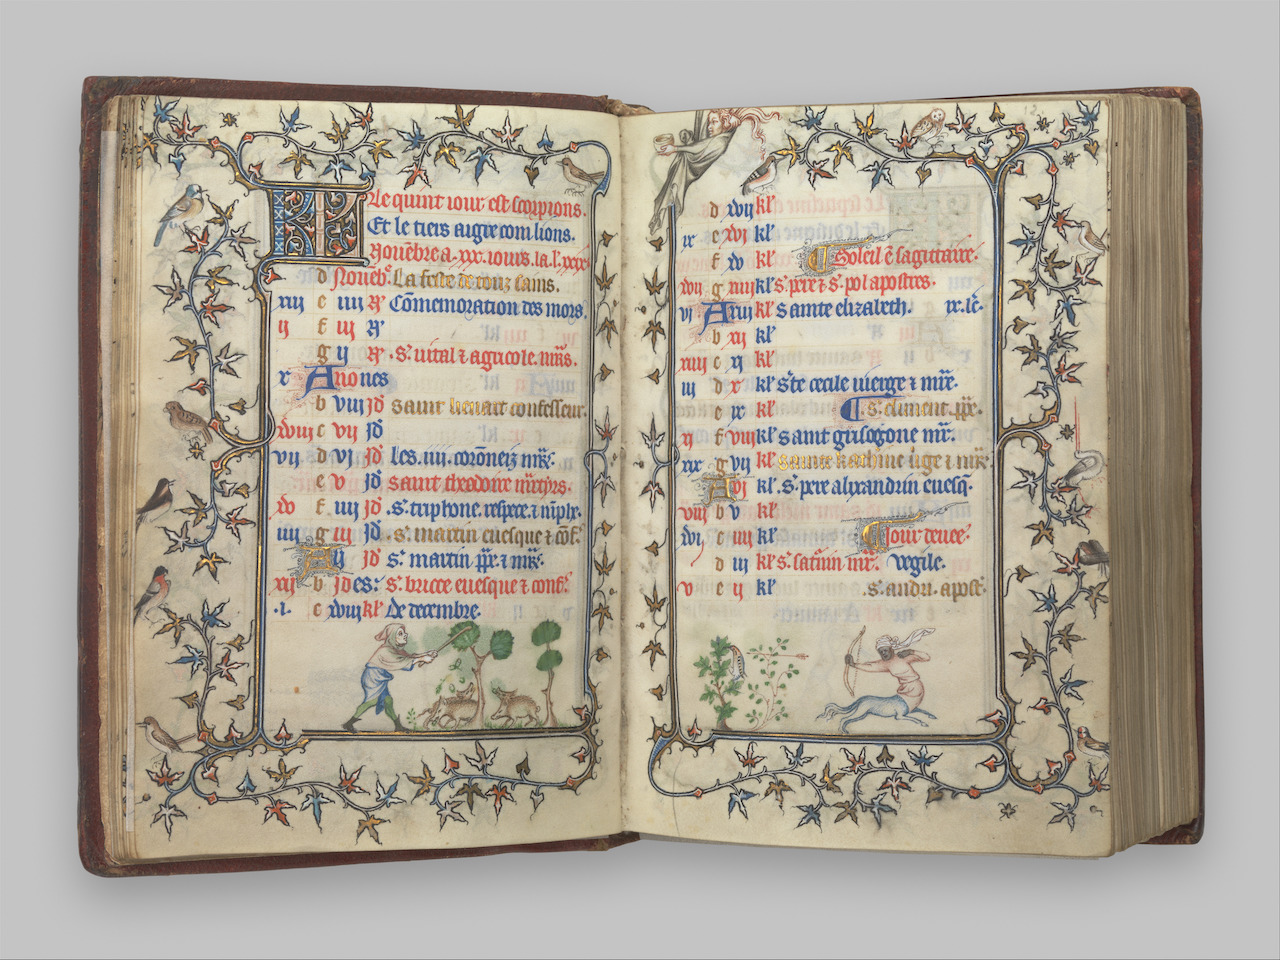 KL Le quint iour est scorpions.
Et le tiers aigre com lions.
Nouēbre a .xxx. iours. la l. xxx
d Nouēb. La feste de touz sains.
xiii e iiii N Cōmemoration des mors.
ii f iii N
g ii N .S. uital ⁊ agricole. mrs.
x A nones
b viii jd saint lienart confesseur.
xviii c vii jd
vii d vi jd Les .iiii. coroneiz mrs.
e v jd saint theodore martyrs.
xv f iiii jd .S. triphone. respice. ⁊ nimphe
iiii g iii jd .S. martin euesque ⁊ cōf.
A ii jd S. martin pp̄e ⁊ mr.
xii b jdes. S. brice euesque ⁊ conf.
.i. c xviii kl De decembre.
d xvii kl
ix e xvi kl
f xv kl Soleil ē sagittaire.
xvii g xiiii kl S. pere ⁊ S. pol apostres.
vi A xiii kl Sainte elizabeth. ix. lc.
b xii kl
xiiii c xi kl
iii d x kl Ste cecile uierge ⁊ mre.
e ix kl S. climent. pp̄e.
xi f viii kl Saint grisogone mr.
xix g vii kl sainte katherine uige ⁊ mr
A vi kl .S. pere alyxandrin euesq.
viii b v kl
xvi c iiii kl Jour
d iii kl S. saturnin mr. vegile.
v e ii kl .S. andri. apost.